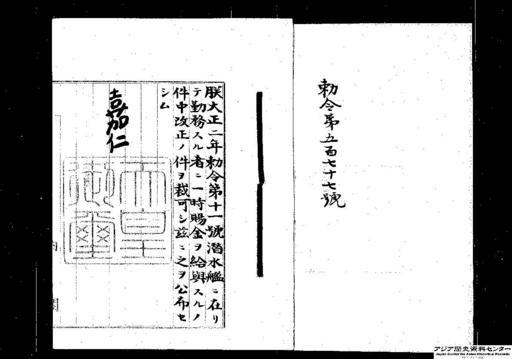 勅令第五百七十七號
朕大正二年勅令第十一號潜水艦ニ在リ
テ勤務スル者ニ一時賜金ヲ給與スルノ
件中改正ノ件ヲ裁可シ茲ニ之ヲ公布セ
シム
嘉仁
天皇
御璽
アジア歴史資料センター
Japan Center for Asian Historical Records